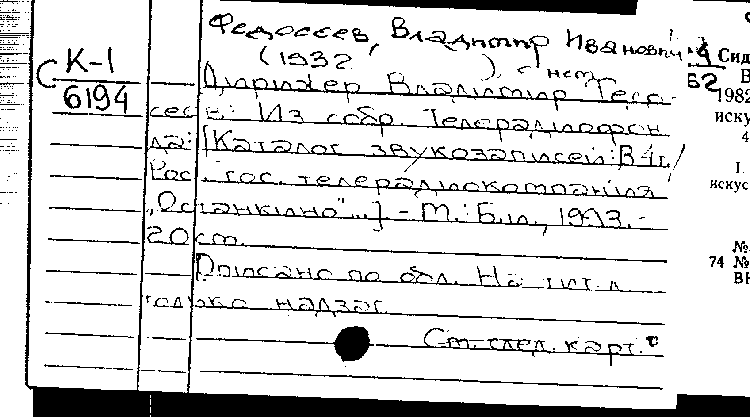 Федосеев, Владимир Иванович
(1932
), с нст.
С К-1
6194
Дирижер Владимир Федо-
сеев: Из собр. Телерадиофон
да: [Каталог звукозаписей: В 4 ч. /
Рос. гос. телерадиокомпания
„Останкино"...] - М.: Б.и., 1993. -
20 см.
Описано по обл. На тит. л
только надзаг.
См. след. карт.
62
Сид
В
1982
иску
4
I.
искус
№
74 №
ВН